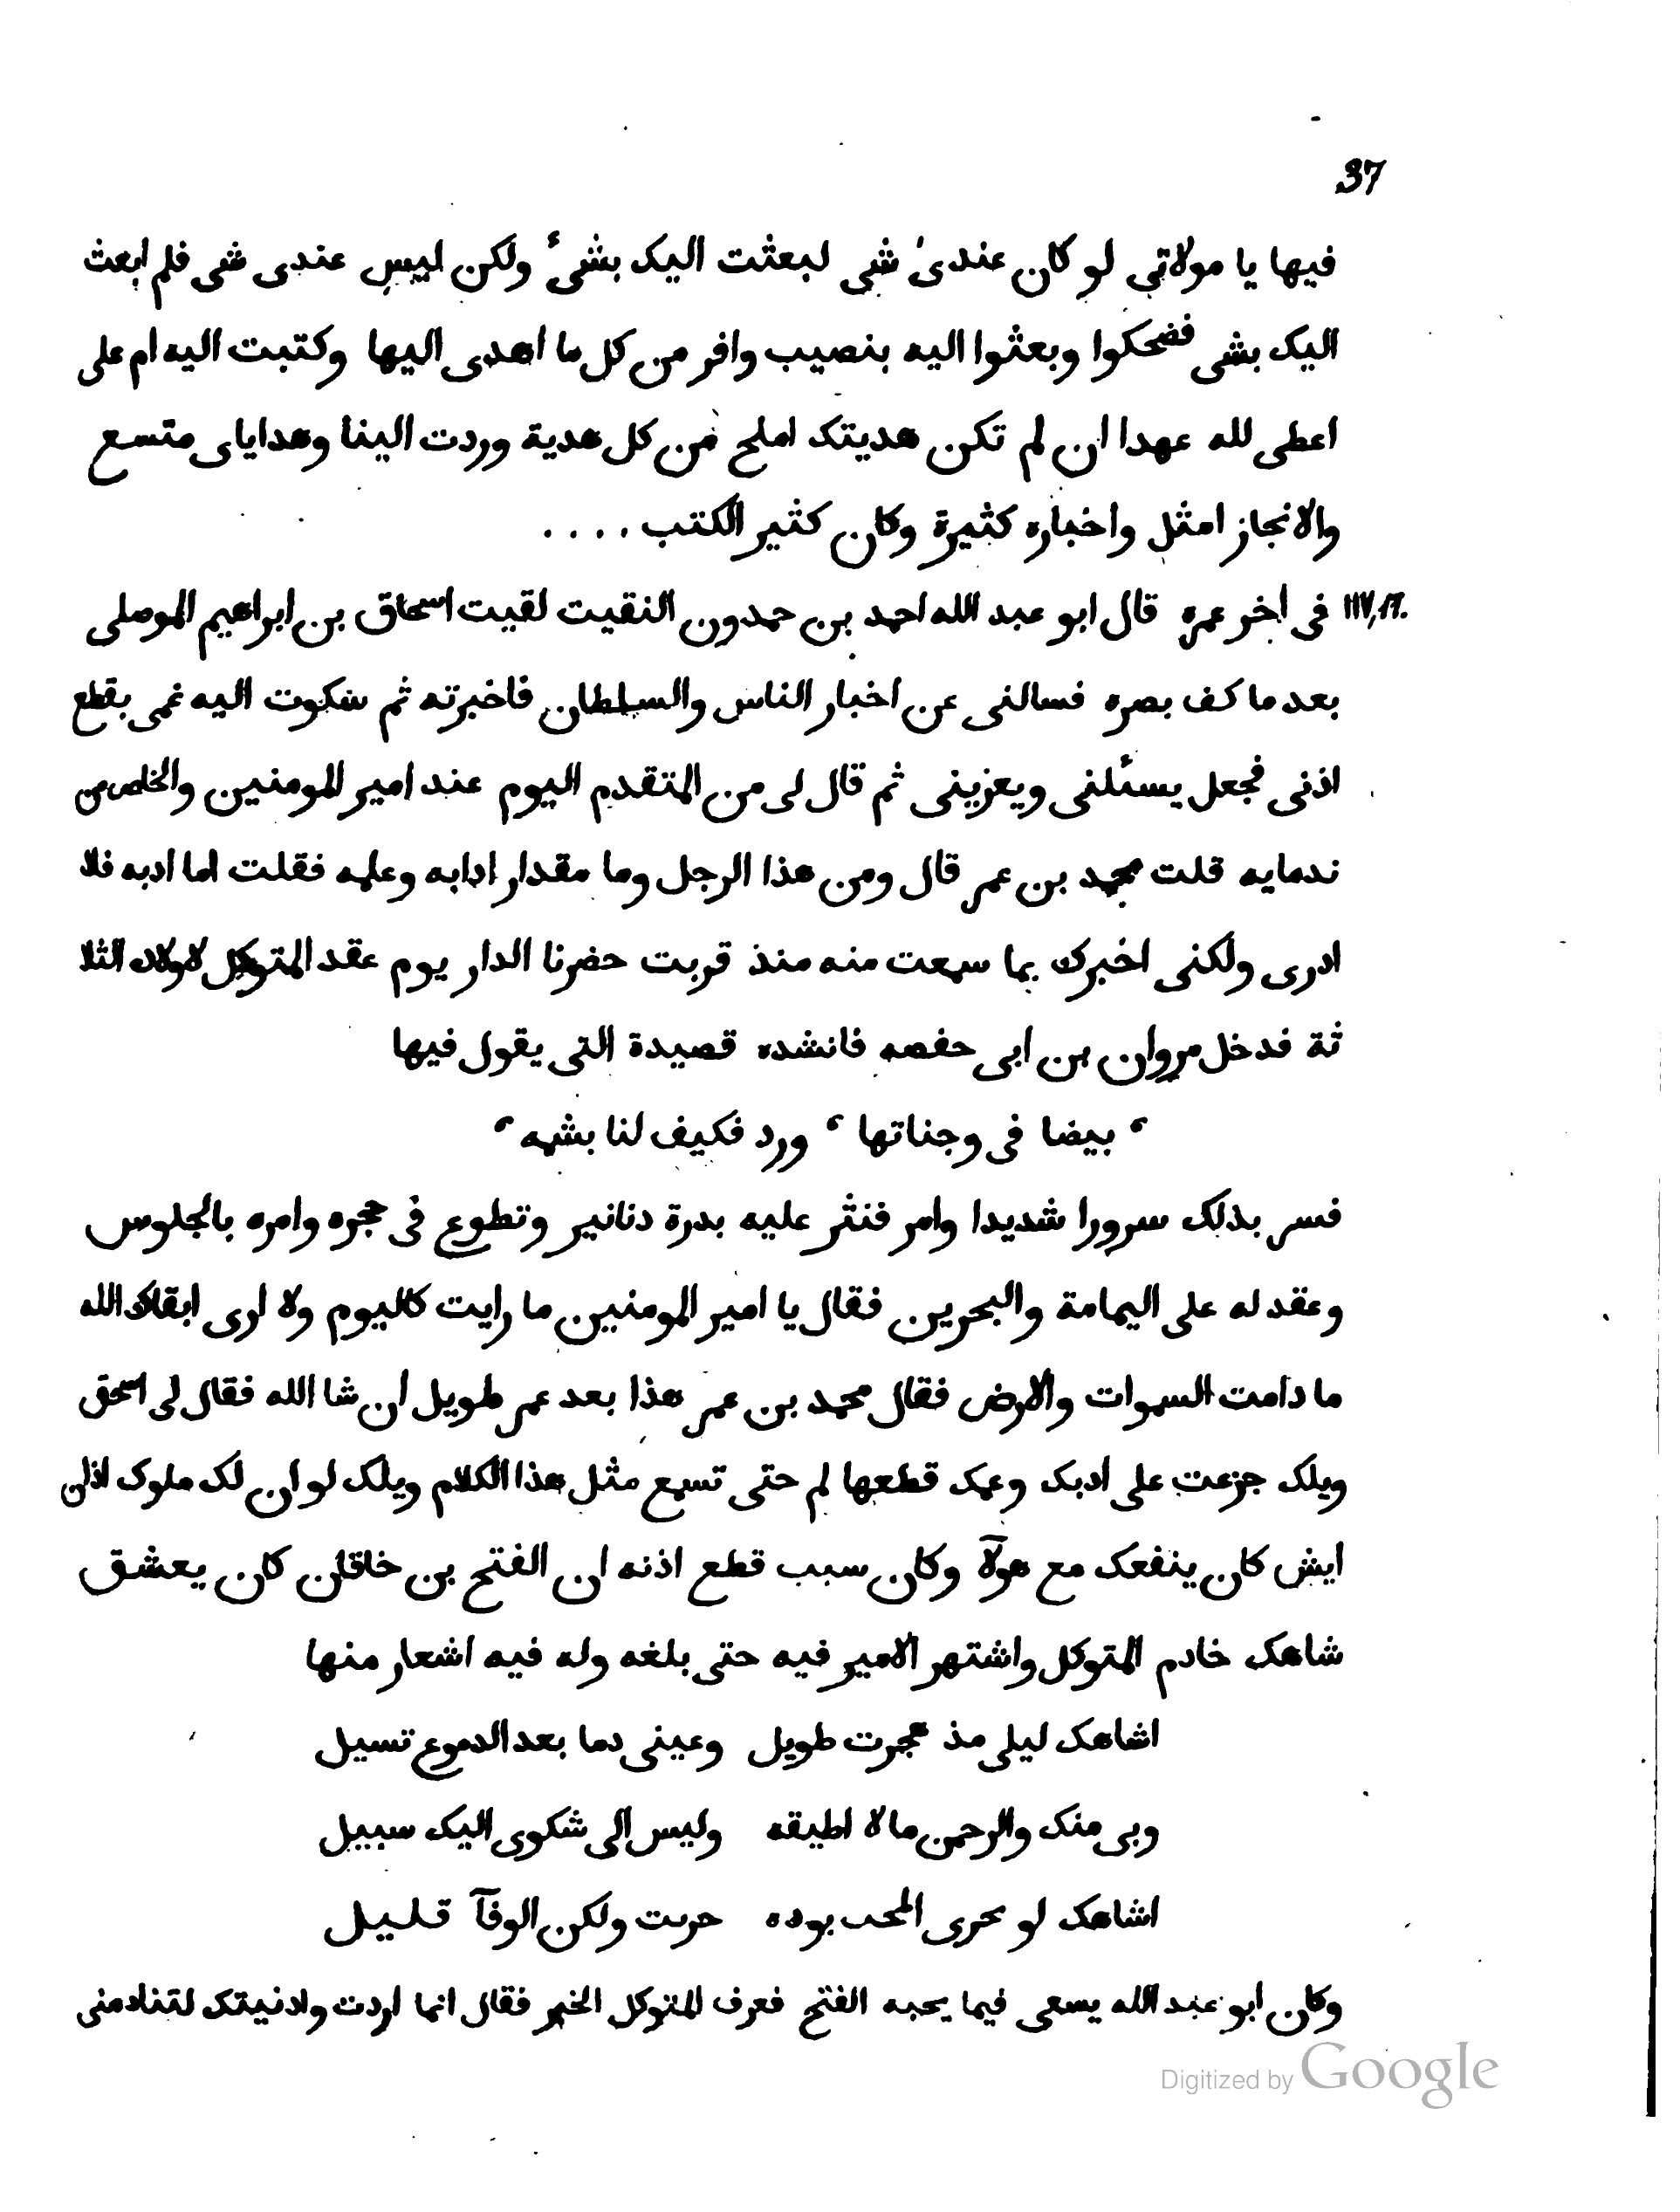 37
فيها يا مولاتي لو كان عندى شى لبعثت اليك بشىء ولكن ليس عندى شى فلم ابعث
اليك بشى فضحكوا وبعثوا اليه بنصيب وافر من كل ما اهدى اليها وكتبت اليه ام على
اعطى لله عهدا ان لم تكن هديتك املح من كل هدية وردت الينا وهداياى متسع
والانجاز امثل واخباره كثيرة وكان كثير الكتب ....
١١٧,١٦. فى اخر عمره قال ابو عبد الله احمد بن حمدون النقيت لقيت اسحاق بن ابراهيم الموصلى
بعد ما كف بصره فسالنى عن اخبار الناس والسلطان فاخبرته ثم شكوت اليه غمى بقطع
اذنى فجعل يسئلنى ويعزينى ثم قال لى من المتقدم اليوم عند امير المومنين والخاص من
ندمايه قلت محمد بن عمر قال ومن هذا الرجل وما مقدار ادابه وعلمه فقلت اما ادبه فلا
ادرى ولكنى اخبرك بما سمعت منه منذ قربت حضرنا الدار يوم عقد المتوكل لاولاده الثلا
ثة فدخل مروان بن ابى حفصه فانشده قصيدة التى يقول فيها
، بيضا فى وجناتها ، ورد فكيف لنا بشمه ،
فسر بذلك سرورا شديدا وامر فنثر عليه بدرة دنانير وتطوع فى حجره وامره بالجلوس
وعقد له على اليمامة والبحرين فقال يا امير المومنين ما رايت كاليوم ولا ارى ابقاك الله
ما دامت السموات والارض فقال محمد بن عمر هذا بعد عمر طويل ان شا الله فقال لى اسحق
ويلك جزعت على ادبك وغمك قطعها لم حتى تسمع مثل هذا الكلام ويلك لو ان لك ملوك اذان
ايش كان ينفعك مع هولآ وكان سبب قطع اذنه ان الفتح بن خاقان كان يعشق
شاهك خادم المتوكل واشتهر الامير فيه حتى بلغه وله فيه اشعار منها
اشاهك ليلى مذ هجرت طويل وعينى دما بعد الدموع تسيل
وبى منك والرحمن ما لا اطيقه وليس الى شكوى اليك سبيل
اشاهك لو يجرى المحب بوده جريت ولكن الوفآ قليل
وكان ابو عبد الله يسعى فيما يحبه الفتح فعرف المتوكل الخبر فقال انما اردت وادنيتك لتنادمنى
Digitized by Google